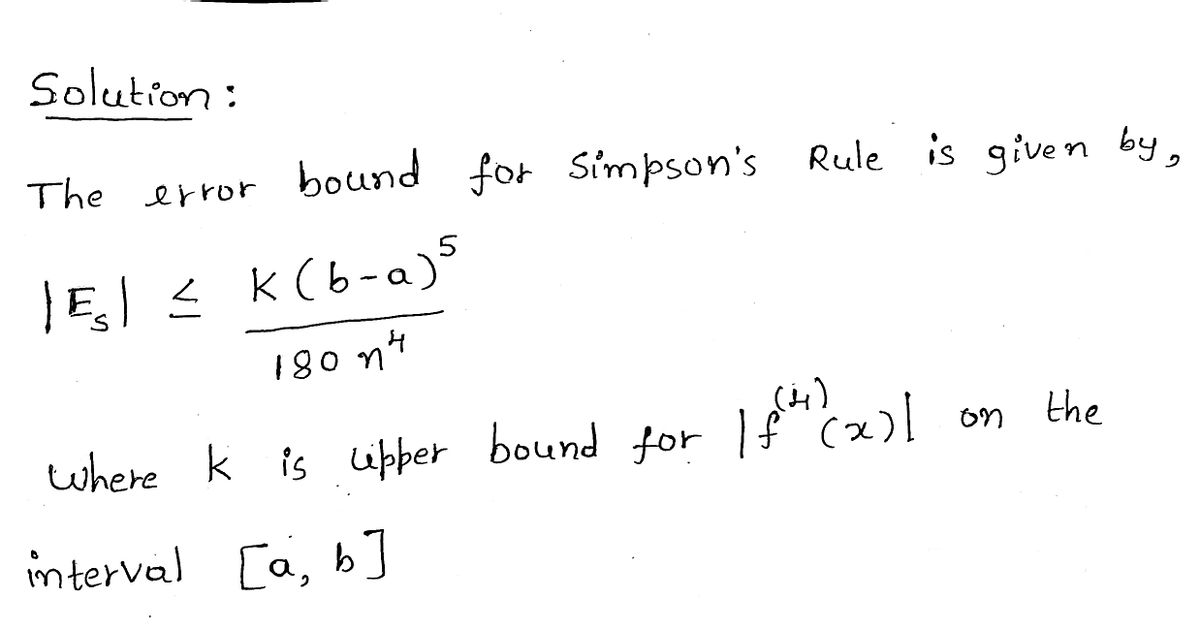 Solution:
The error bound for Simpson's Rule is given by,
|E_s| ≤ K(b-a)^5 / 180 n^4
where K is upper bound for |f^(4)(x)| on the
interval [a, b]